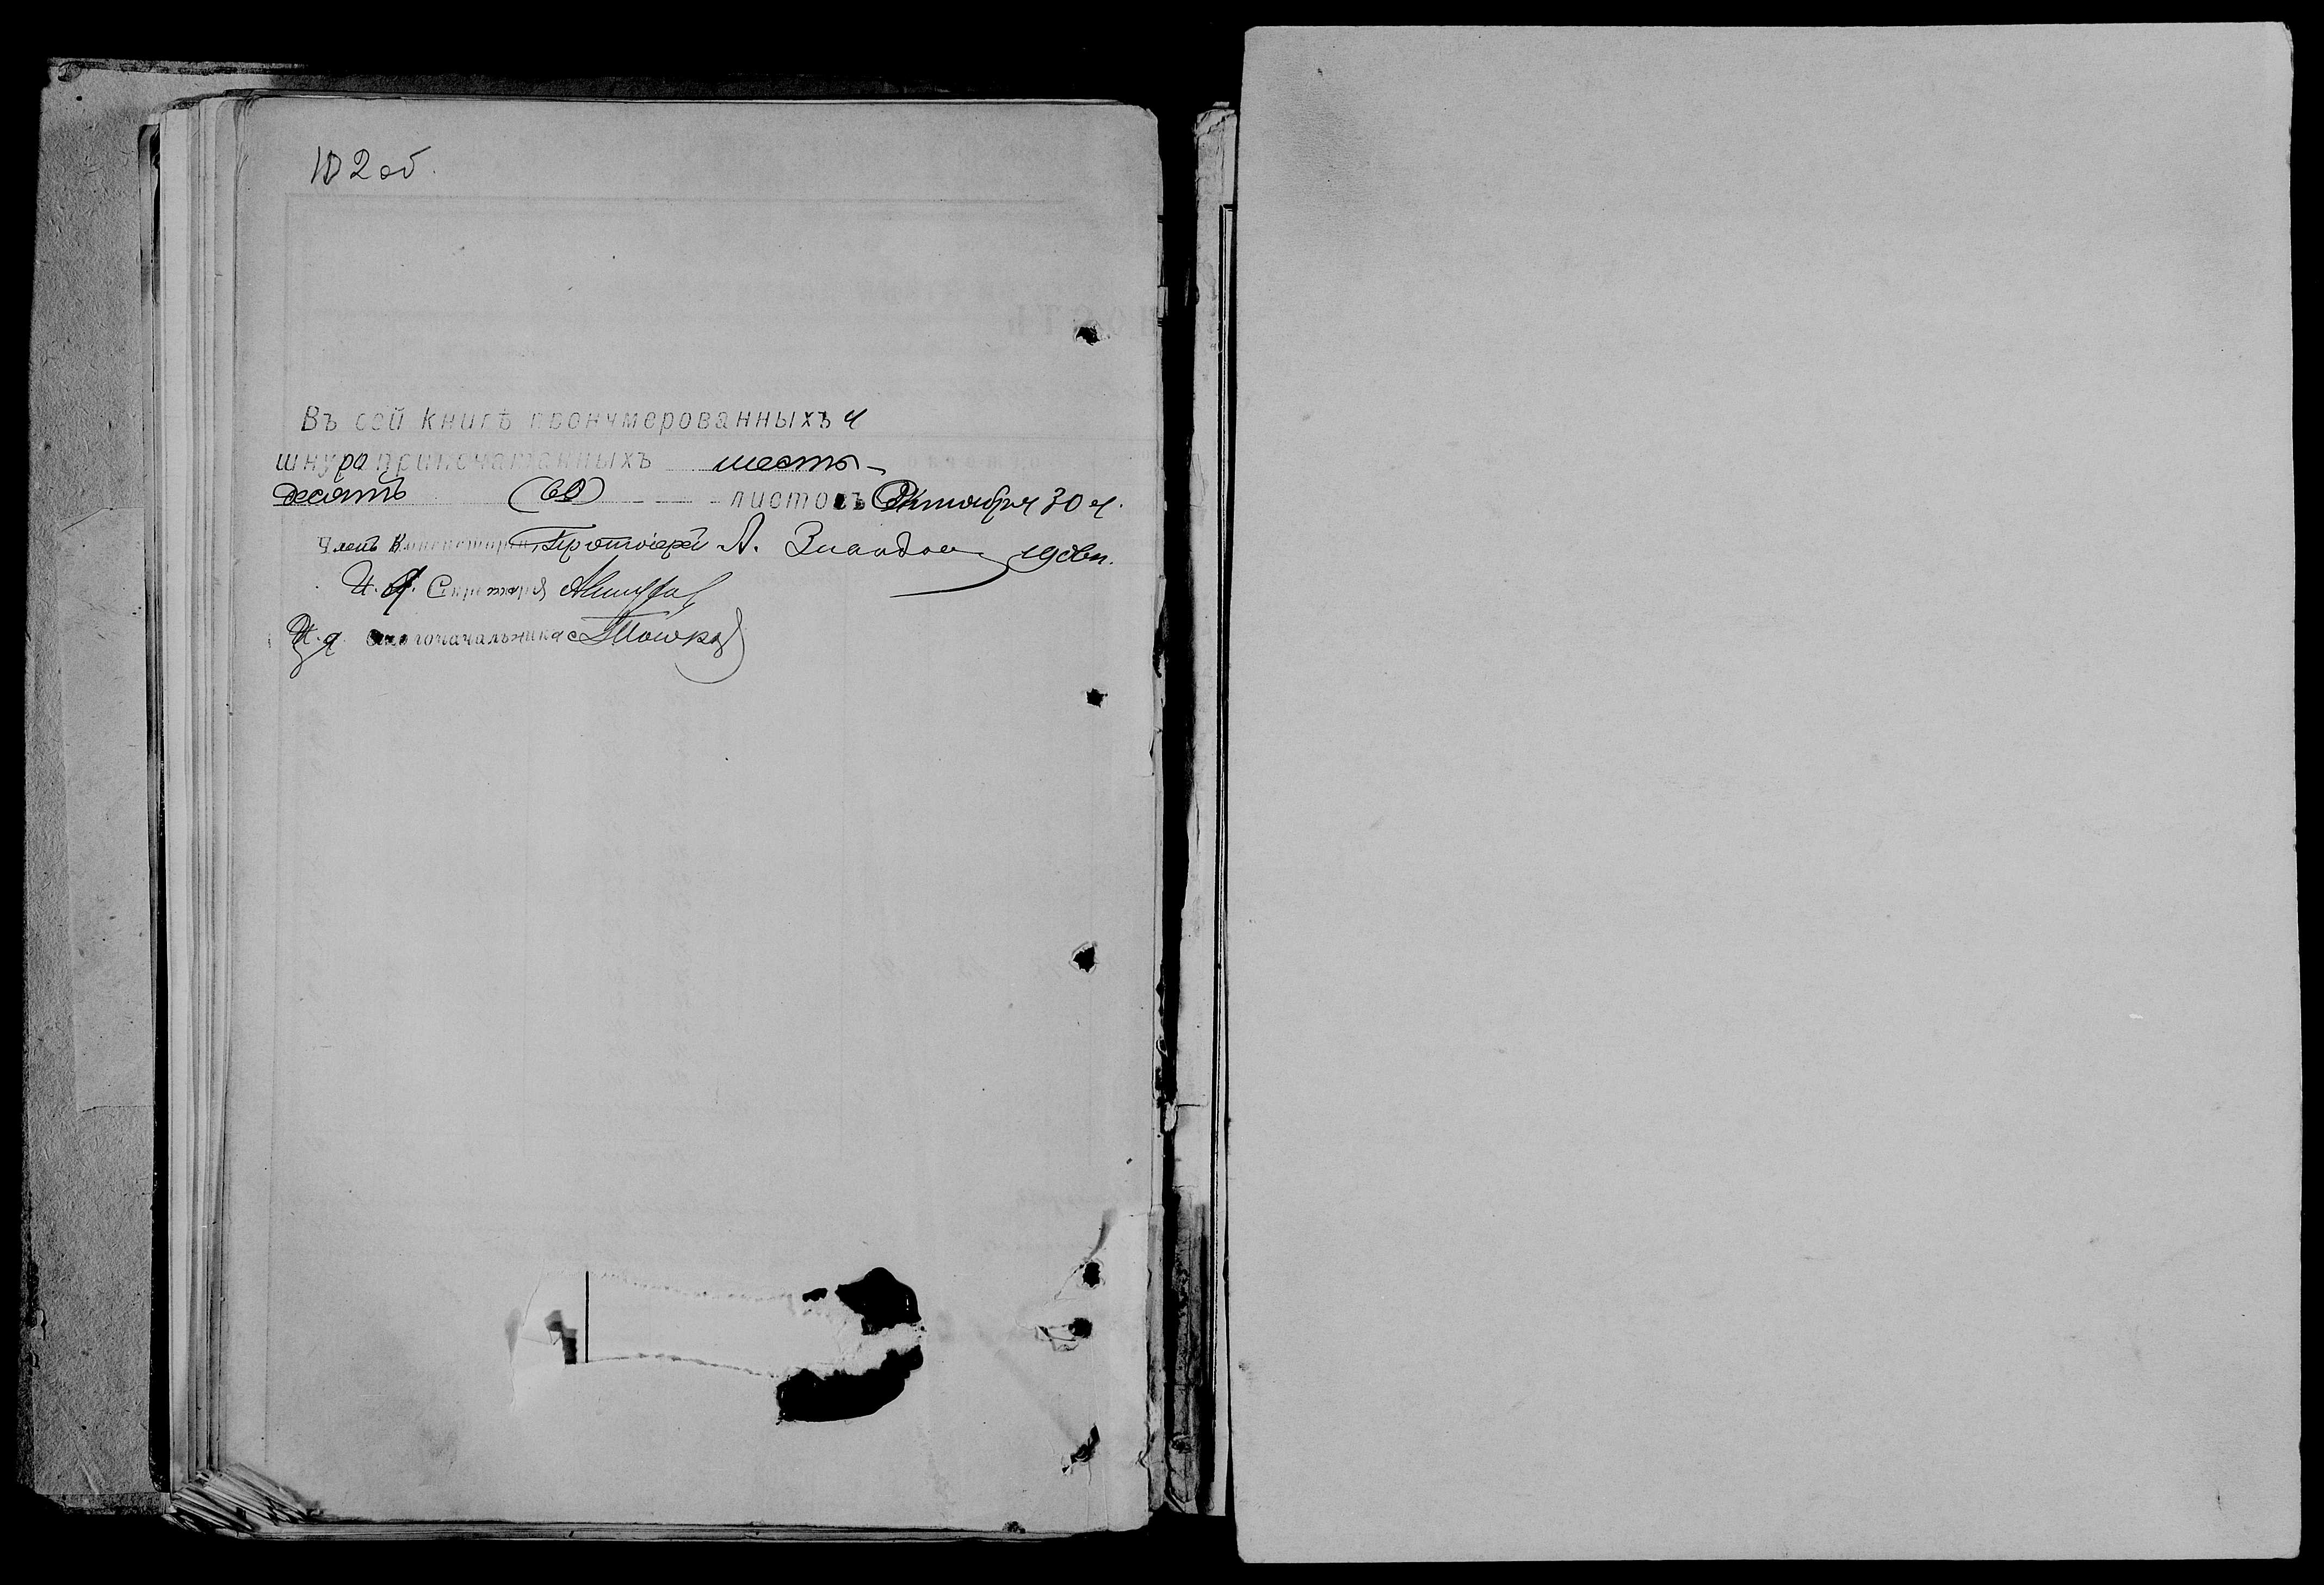 102 об.
Въ сей книгѣ пронумерованныхъ и
шнуроприпечатанныхъ шесть-
десятъ (60) листовъ Октября 30 д.
Членъ Консисторіи, Протоіерей А.
И. д. Секретаря
И. д. Столоначальника